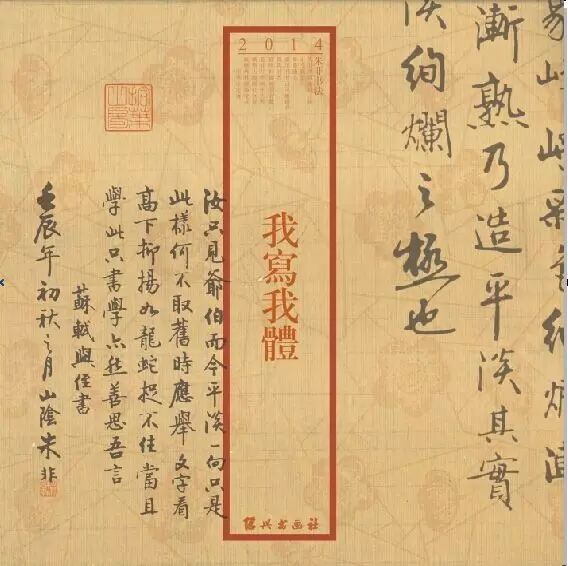 崢嶸采色絢爛漸
漸熟乃造平淡其實
淡絢爛之極也
2014
朱非书法
我寫我體
绍兴书画社
汝只見爺伯而今平淡一向只是
此樣何不取舊時應舉文字看
高下抑揚如龍蛇捉不住當且
學此只書學亦然善思吾言
蘇軾與侄書
壬辰年初秋之月山陰朱非